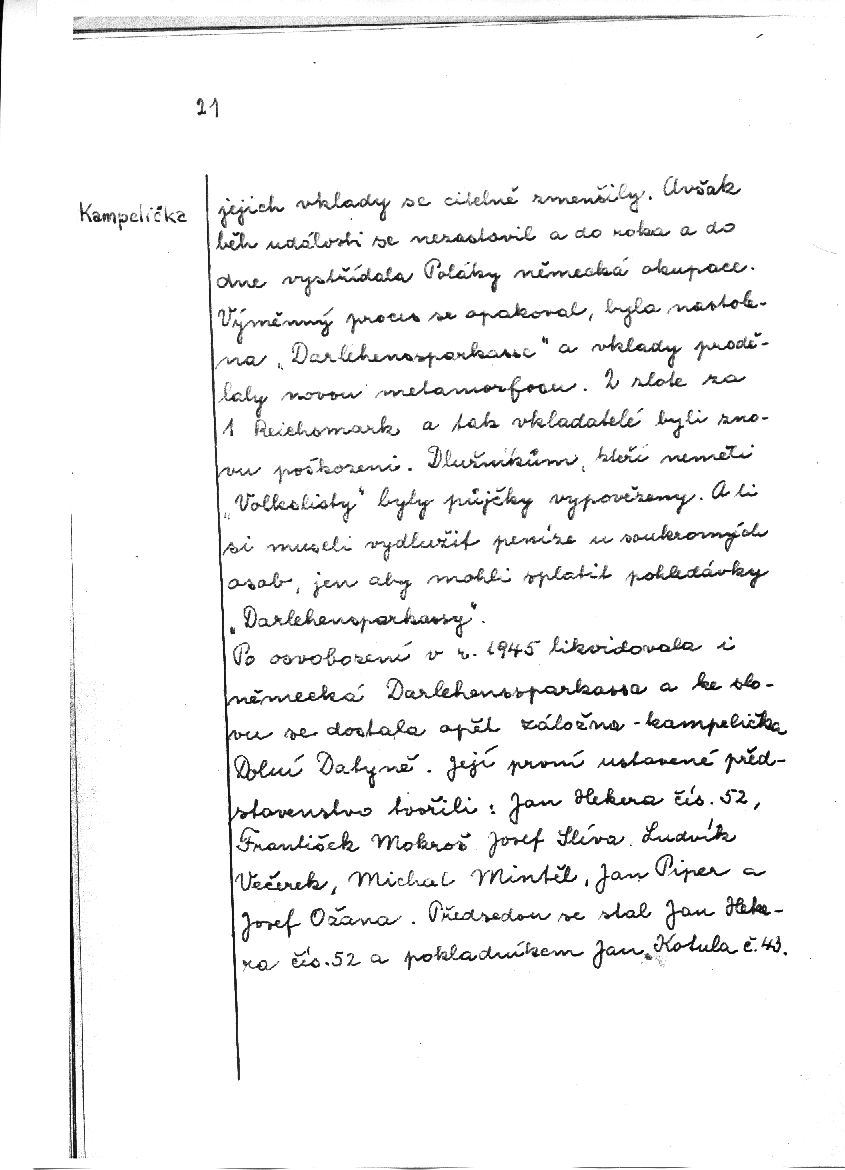 21
Kampelička
jejich vklady se citelně zmenšily. Avšak
běh událostí se nezastavil a do roka a do
dne vystřídala Poláky německá okupace.
Výměnný proces se opakoval, byla nastole-
na „Darlehenssparkasse" a vklady prodě-
laly novou metamorfosu. 2 zloté za
1 Reichsmark a tak vkladatelé byli zno-
vu poškozeni. Dlužníkům, kteří neměli
„Volkslisty" byly půjčky vypovězeny. A ti
si museli vydlužit peníze u soukromých
osob, jen aby mohli splatit pohledávky
„Darlehensparkassy".
Po osvobození v r. 1945 likvidovala i
německá Darlehenssparkassa a ke slo-
vu se dostala opět záložna - kampelička
Dolní Datyně. Její první ustavené před-
stavenstvo tvořili: Jan Hekera čís. 52,
František Mokroš Josef Slíva. Ludvík
Večerek, Michal Mintěl, Jan Piper a
Josef Ožana. Předsedou se stal Jan Heke-
ra čís. 52 a pokladníkem Jan Kotula č. 43.